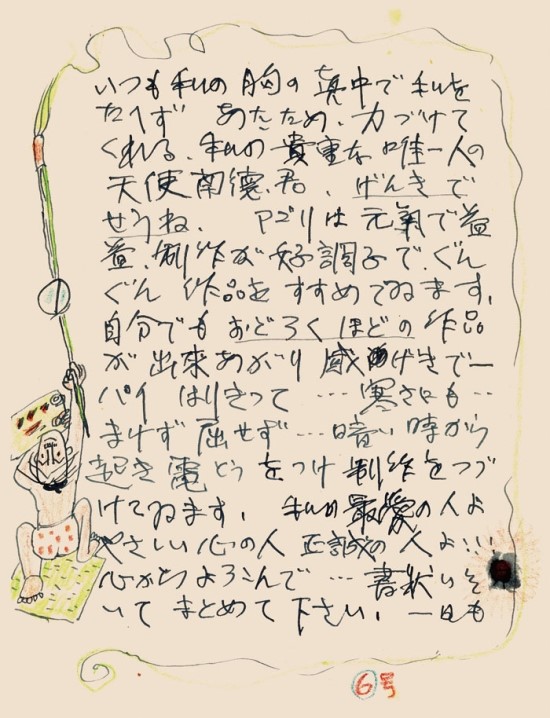 いつも私の胸の真中で私を
たへず あたため、力づけて
くれる、私の貴重な唯一人の
天使南德君、げんきで
せうね、 アゴリは元氣で益
益、制作が好調子で、ぐん
ぐん 作品をすすめてゐます、
自分でもおどろくほどの作品
が出来あがり 感げきで一
パイ はりきって…寒さにも…
まけず 屈せず…暗い時から
起き電とうをつけ制作をつづ
けてゐます、 私の最愛の人よ
やさしい心の人 正誠の人よ…
心からよろこんで…書状いそ
いで まとめて下さい、一日も
6号